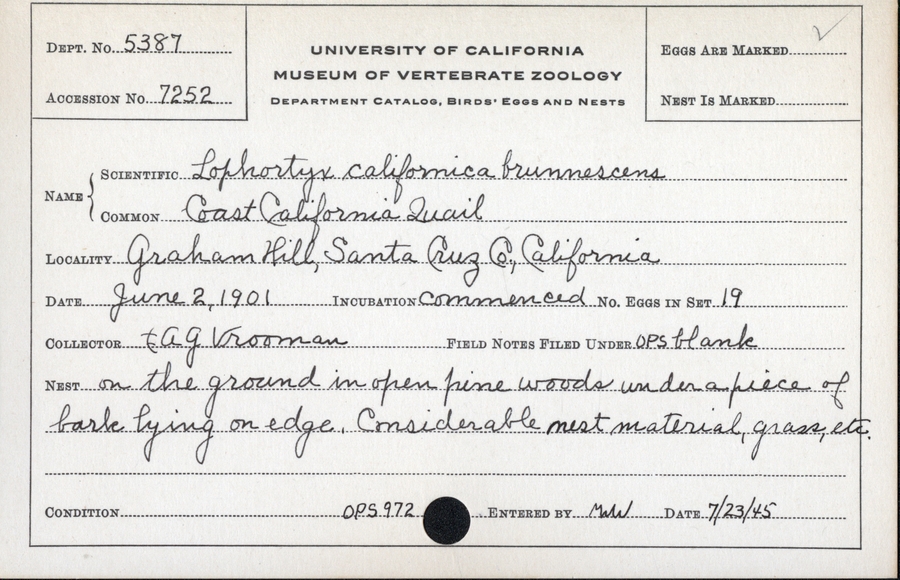 Dept. No. 5387
Accession No. 7252
UNIVERSITY OF CALIFORNIA
MUSEUM OF VERTEBRATE ZOOLOGY
Department Catalog, Birds' Eggs and Nests
Eggs Are Marked ✓
Nest Is Marked
Name
Scientific Lophortyx californica brunnescens
Common Coast California Quail
Locality Graham Hill, Santa Cruz Co., California
Date June 2, 1901 Incubation commenced No. Eggs in Set 19
Collector AG Vrooman Field Notes Filed Under OPS blank
Nest on the ground in open pine woods under a piece of
bark lying on edge. Considerable nest material, grass, etc.
Condition OPS 972 Entered by Date 7/23/45